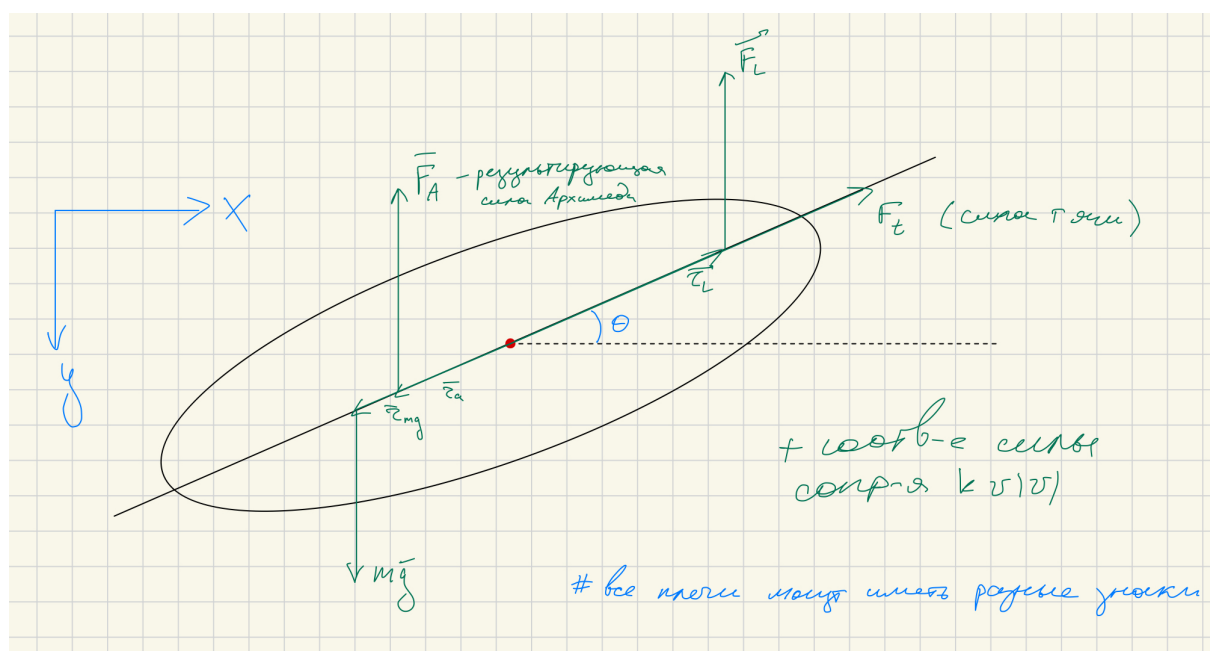 F_L
F_A – результирующая
сила Архимеда
X
F_t (сила тяги)
τ_L
θ
τ_a
τ_mg
y
+ соотв-е силы
сопр-я k v|v|
mg
# все плечи могут иметь разные знаки